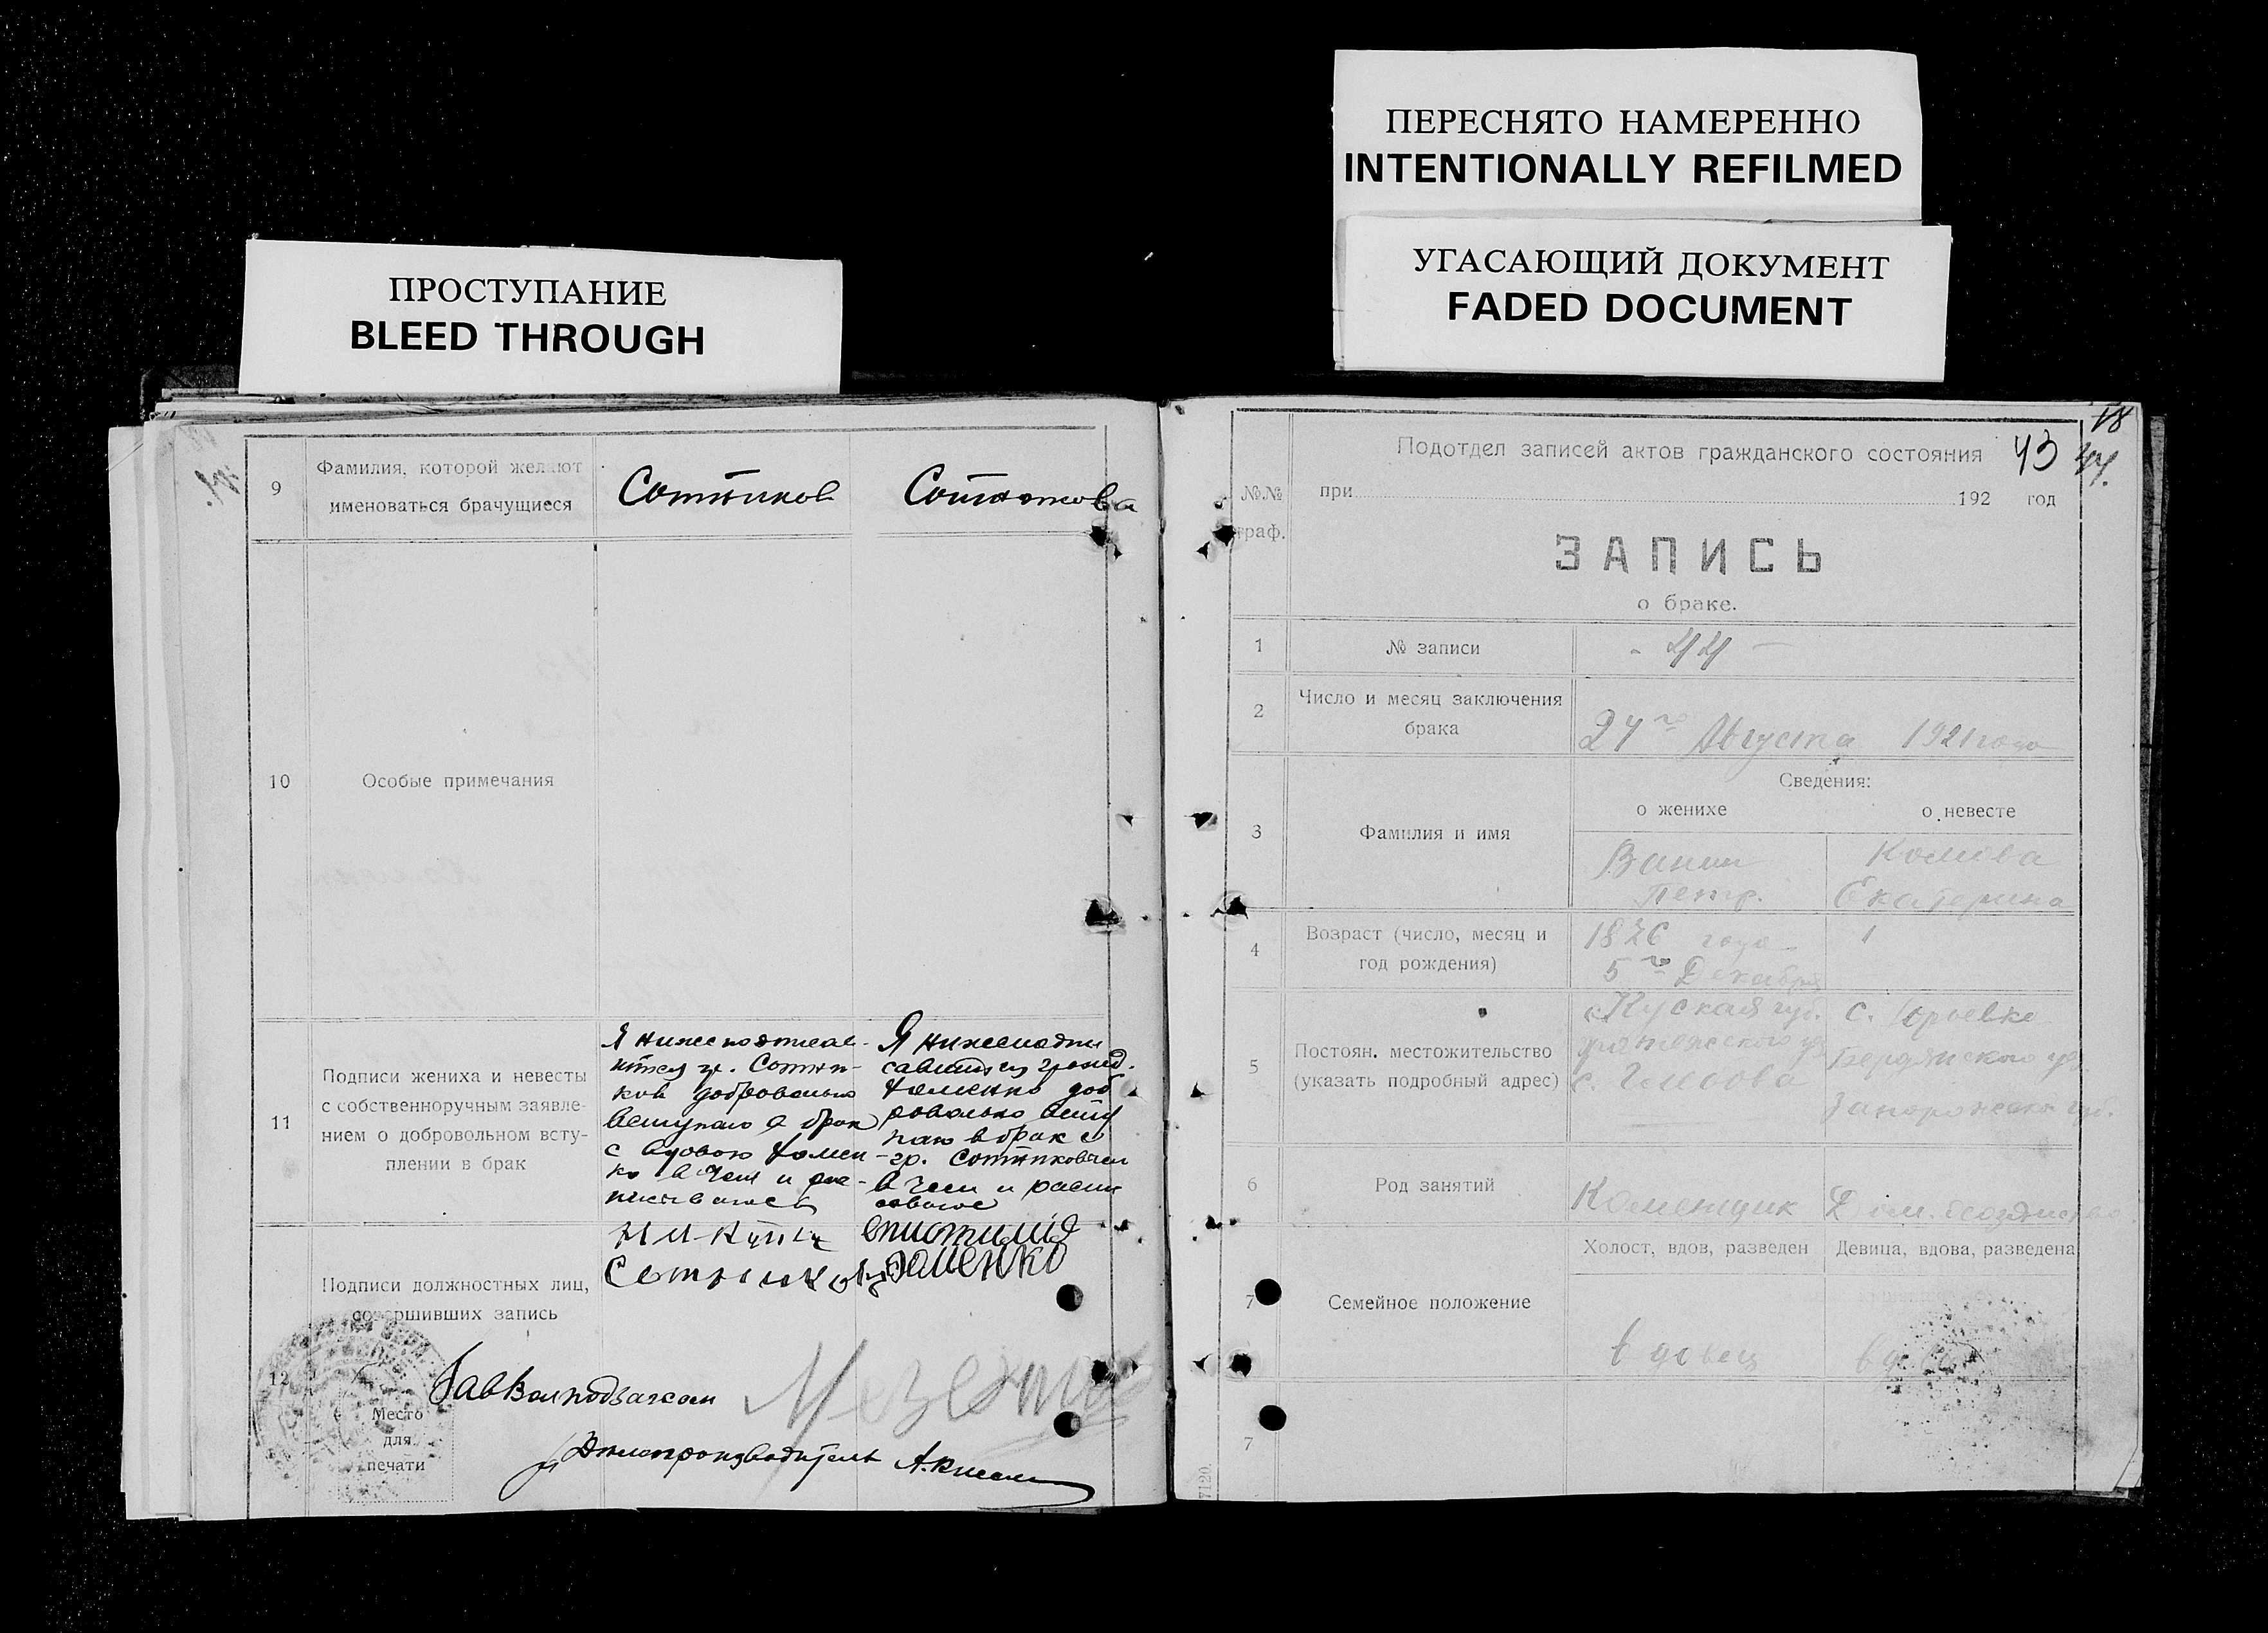 ПЕРЕСНЯТО НАМЕРЕННО
INTENTIONALLY REFILMED
УГАСАЮЩИЙ ДОКУМЕНТ
FADED DOCUMENT
ПРОСТУПАНИЕ
BLEED THROUGH
9
Фамилия, которой желают
именоваться брачущиеся
Сотников
10
Особые примечания
11
Подписи жениха и невесты
с собственноручным заявле-
нием о добровольном всту-
плении в брак
Я
гр. Сотни-
ков добровольно
вступаю в брак
с вдовою Фомен-
ко в чем и рас-
Я нижеподпи
савшаяся гражд.
Фоменко доб
ровольно всту
паю в брак с
гр. Сотниковым
в чем и распи
Подписи должностных лиц,
совершивших запись
Никита
Сотников
Фоменко
12
Зав
Место
для
печати
Делопроизводитель А.
18
43
44.
№.№
граф.
Подотдел записей актов гражданского состояния
при 192 год
ЗАПИСЬ
о браке.
1
№ записи
- 44 -
2
Число и месяц заключения
брака
24го Августа 1921 года
3
Фамилия и имя
Сведения:
о женихе
о невесте
Ванин
Петр.
Комова
Екатерина
4
Возраст (число, месяц и
год рождения)
года
5го Декабря
5
Постоян. местожительство
(указать подробный адрес)
Курская губ.
с.
с. Юрьевка
Бердянского у.
Запорожской губ.
6
Род занятий
Каменщик
Дом. хозяйство
7
Семейное положение
Холост, вдов, разведен
Девица, вдова, разведена
вдовец
вдова
7
7120.